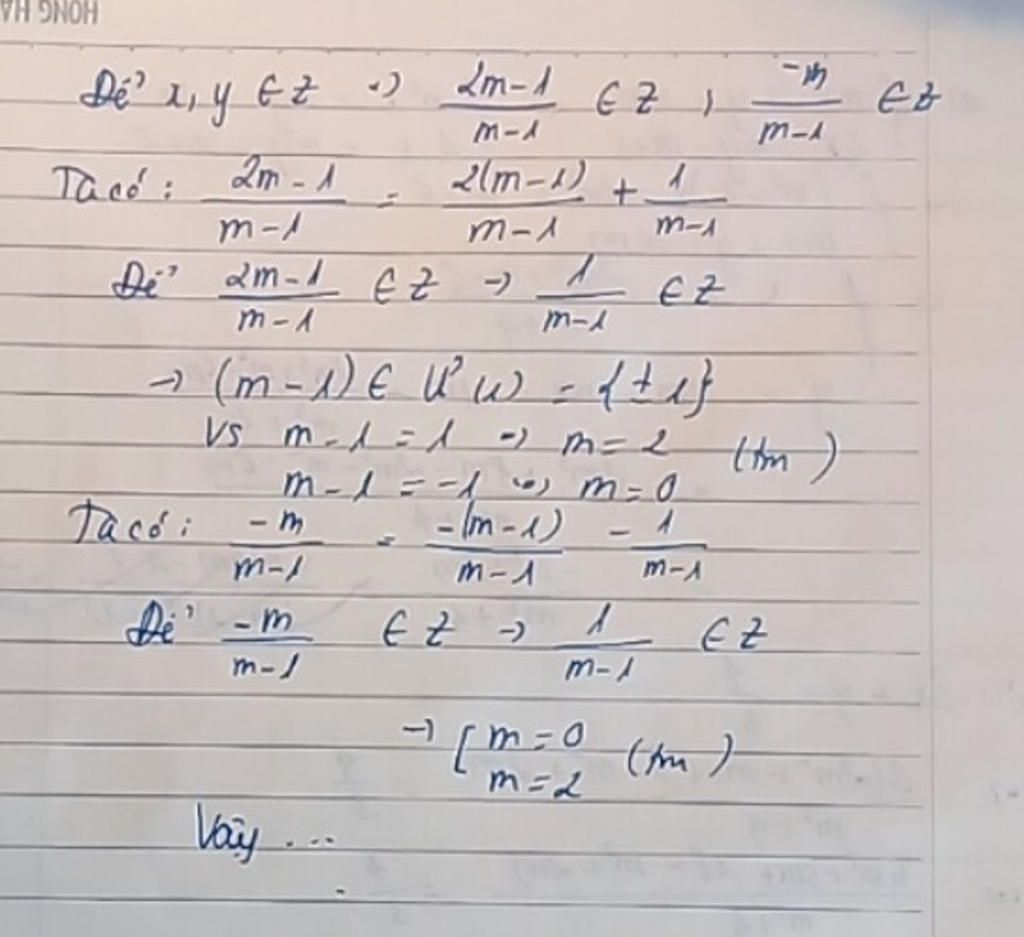 HONG HA
Để x, y ∈ Z → \frac{2m-1}{m-1} ∈ Z ; \frac{-m}{m-1} ∈ Z
Ta có: \frac{2m-1}{m-1} = \frac{2(m-1)}{m-1} + \frac{1}{m-1}
Để \frac{2m-1}{m-1} ∈ Z → \frac{1}{m-1} ∈ Z
→ (m-1) ∈ Ư(1) = {±1}
Vs m-1 = 1 → m = 2 (tm)
m-1 = -1 → m = 0
Ta có: \frac{-m}{m-1} = \frac{-(m-1)}{m-1} - \frac{1}{m-1}
Để \frac{-m}{m-1} ∈ Z → \frac{1}{m-1} ∈ Z
→ [ m = 0 (tm)
m = 2
Vậy ...